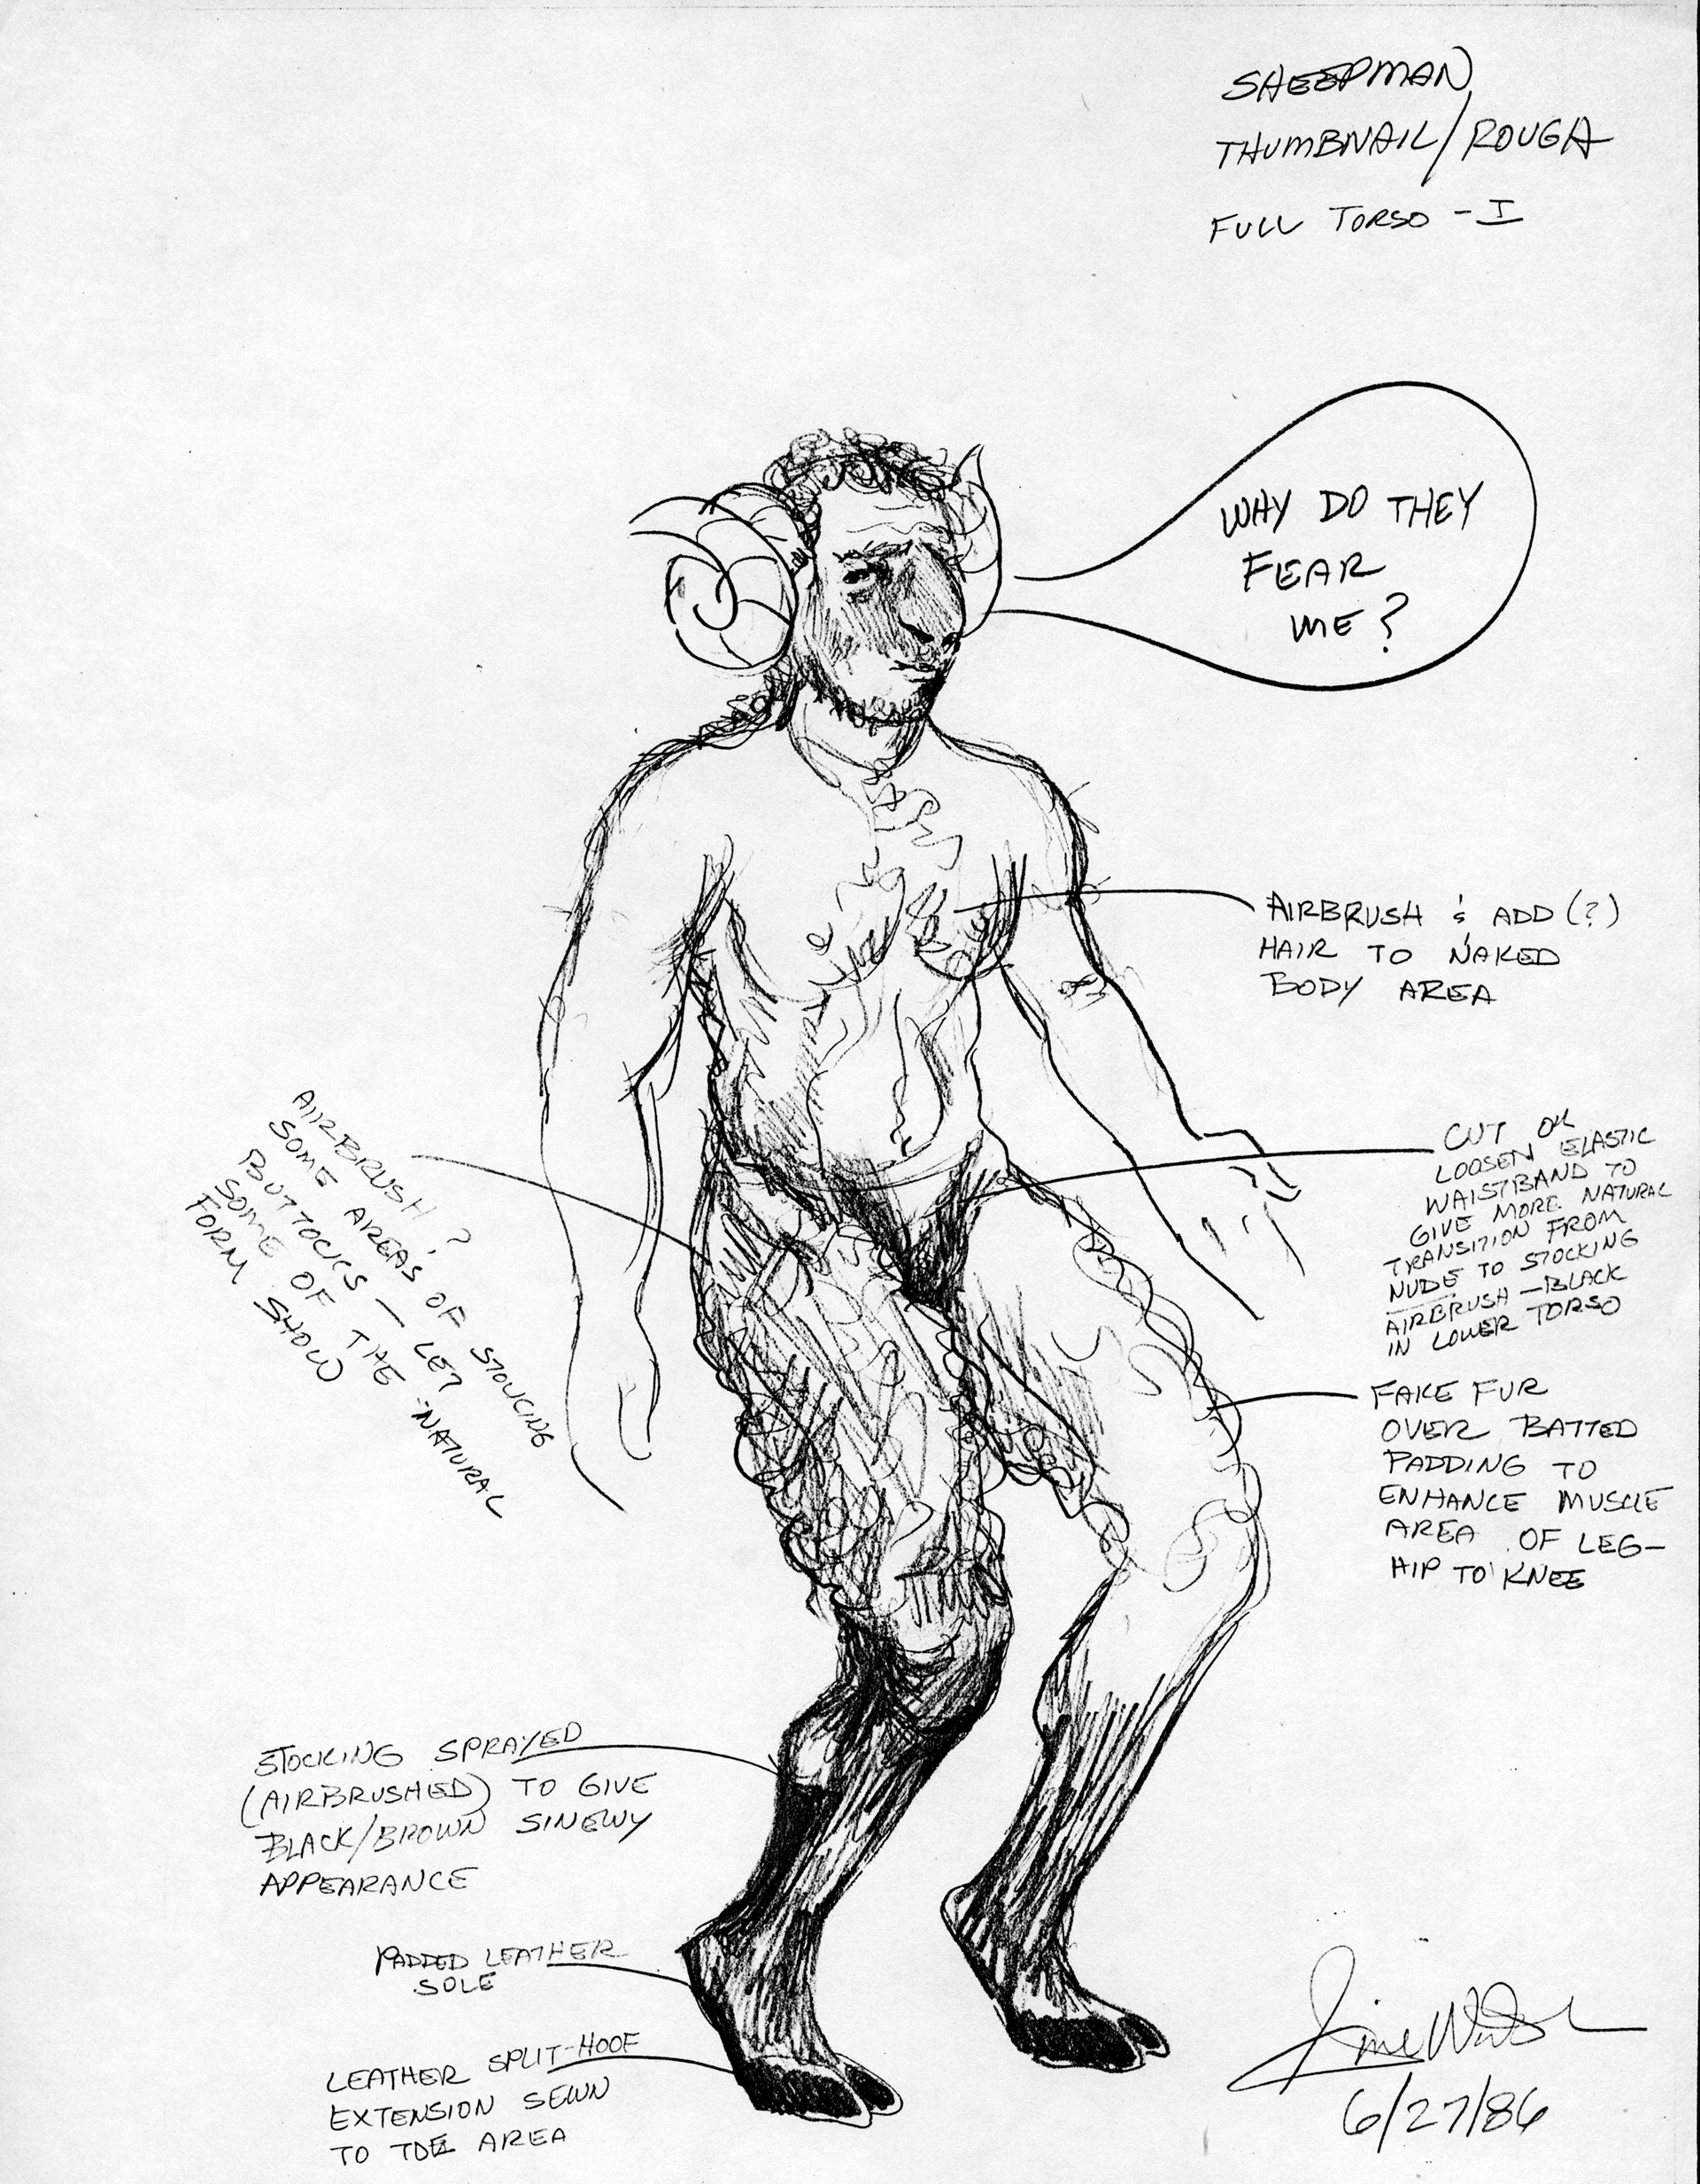 SHEEPMAN
THUMBNAIL/ROUGH
FULL TORSO - I
WHY DO THEY
FEAR
ME?
AIRBRUSH & ADD (?)
HAIR TO NAKED
BODY AREA
AIRBRUSH?
SOME AREAS OF STOCKING
BUTTOCKS - LET
SOME OF THE NATURAL
FORM SHOW
CUT OR
LOOSEN ELASTIC
WAISTBAND TO
GIVE MORE NATURAL
TRANSITION FROM
NUDE TO STOCKING
AIRBRUSH - BLACK
IN LOWER TORSO
FAKE FUR
OVER BATTED
PADDING TO
ENHANCE MUSCLE
AREA OF LEG-
HIP TO KNEE
STOCKING SPRAYED
(AIRBRUSHED) TO GIVE
BLACK/BROWN SINEWY
APPEARANCE
PADDED LEATHER
SOLE
LEATHER SPLIT-HOOF
EXTENSION SEWN
TO TOE AREA
6/27/86